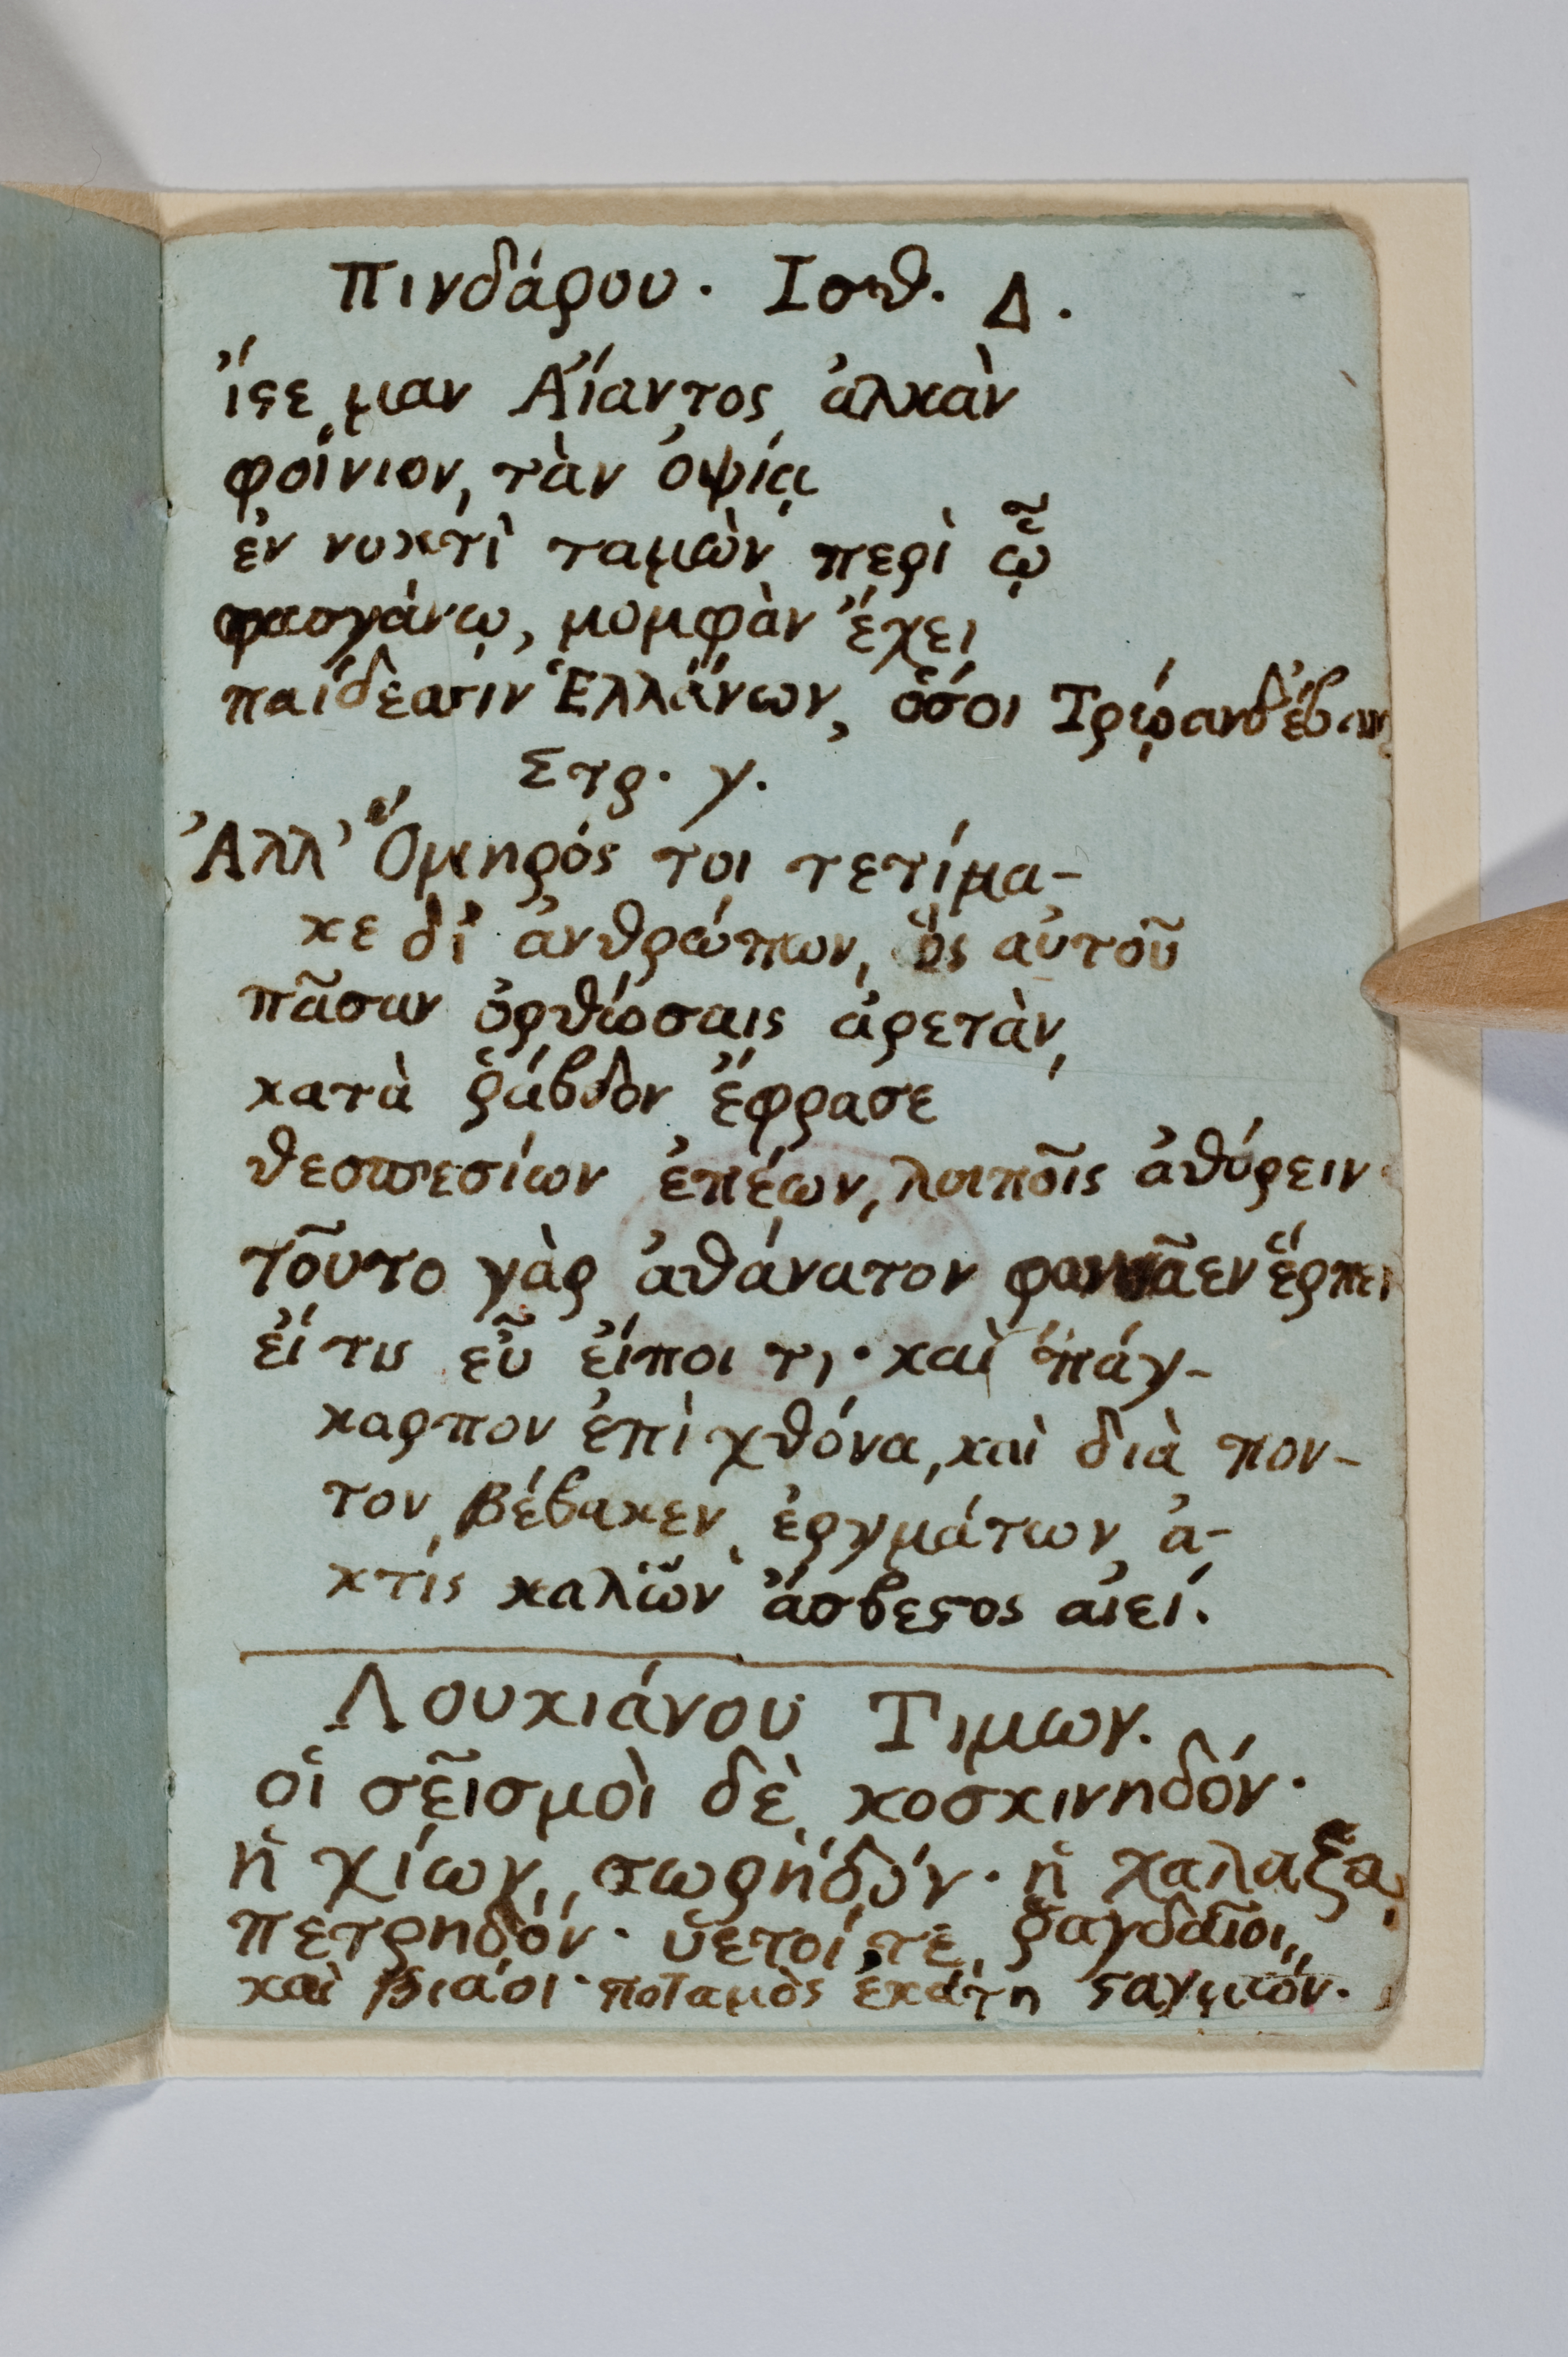 Πινδάρου. Ισθ. Δ.
ἴϛε μαν Αἴαντος ἀλκὰν
φοίνιον, τὰν ὀψίᾳ
ἐν νυκτὶ ταμὼν περὶ ᾧ
φασγάνῳ, μομφὰν ἔχει
παίδεσσιν Ἑλλάνων, ὅσοι Τρῴανδ' ἔβαν
Στρ. γ.
Ἀλλ' Ὅμηρός τοι τετίμα-
κε δι' ἀνθρώπων, ὃς αὐτοῦ
πᾶσαν ὀρθώσαις ἀρετὰν,
κατὰ ῥάβδον ἔφρασε
θεσπεσίων ἐπέων, λοιποῖς ἀθύρειν
τοῦτο γὰρ ἀθάνατον φωνᾶεν ἕρπει
εἴ τις εὖ εἴποι τι· καὶ πάγ-
καρπον ἐπὶ χθόνα, καὶ διὰ πον-
τον βέβακεν ἐργμάτων ἀ-
κτὶς καλῶν ἄσβεϛος αἰεί.
Λουκιάνου Τιμων.
οἱ σεῖσμοὶ δὲ κοσκινηδόν·
ἡ χίων, σωρηδόν· ἡ χαλαζα,
πετρηδόν· ὑετοί τε ῥαγδαῖοι,
καὶ βιάοι· ποταμὸς ἑκάϛη ϛαγμόν.